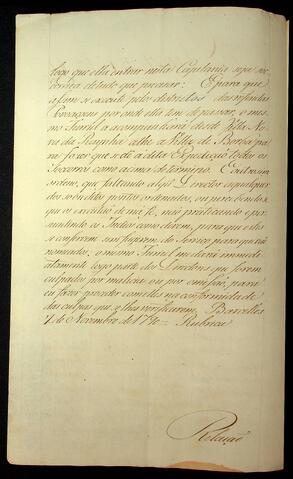 logo que ella entrar nesta Capitania seja soc
corrida de tudo que precisar: E para que
assim se execute pelos districtos das referidas
Povoaçoens por onde ella tem de passar, o mes
mo Furriel a acompanhará desde Villa No
va da Raynha athe a Villa de Borba pa
ra fazer que se dê a dita Expedição todos os
Soccorros como acima determino. E outro sim
ordeno, que faltando algũ Director a qualquer
dos sobreditos pontos ordenados, ou percebendo
que os executa de má fé, não praticando e per
mittindo os Indios como devem, para que elles
se conservem sem fugirem do Serviço para que vão
nomeados, o mesmo Furriel me dará immedi
atamente logo parte dos Directores que forem
culpados por malicia ou por omissão, para
eu fazer proceder com elles na conformidade
das culpas que se lhes verificarem. Barcellos
7 de Novembro de 1790 = Rubrica
Relação